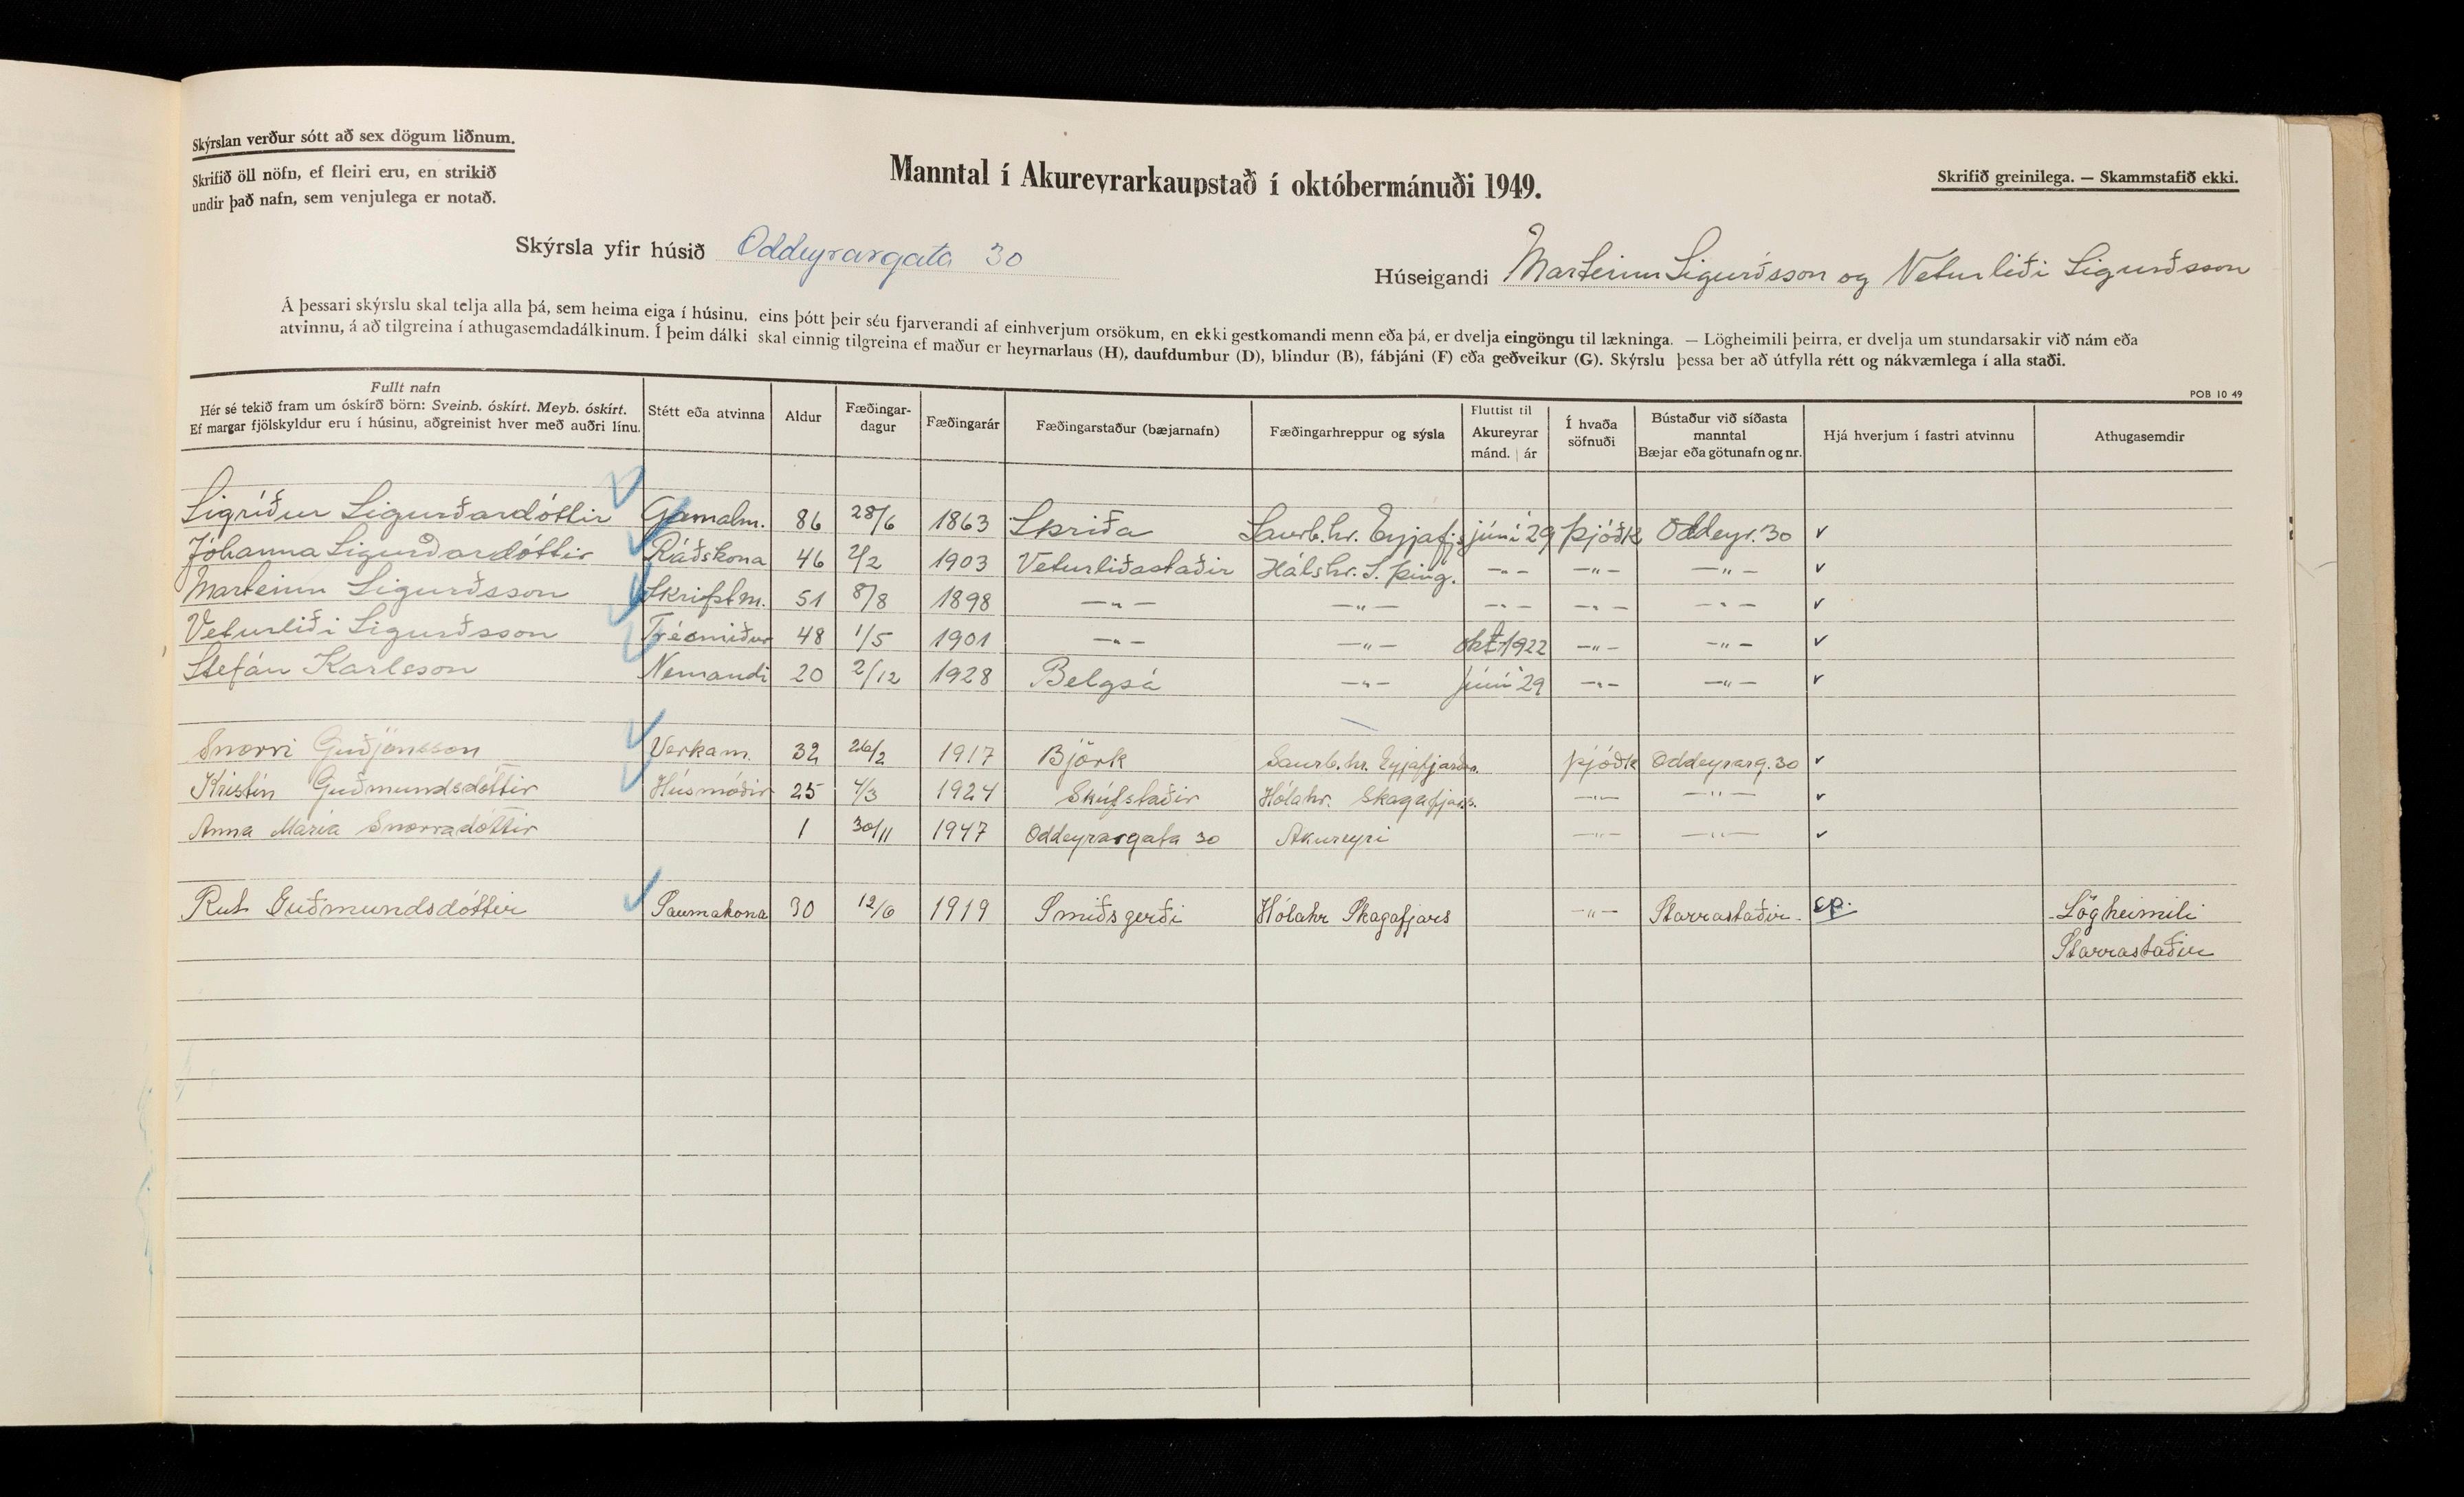 Skýrslan verður sótt að sex dögum liðnum.
Skrifið öll nöfn, ef fleiri eru, en strikið
undir það nafn, sem venjulega er notað.
Manntal í Akureyrarkaupstað í októbermánuði 1949.
Skrifið greinilega. — Skammstafið ekki.
Skýrsla yfir húsið Oddeyrargata 30
Húseigandi Marteinn Sigurðsson og Veturliði Sigurðsson
Á þessari skýrslu skal telja alla þá, sem heima eiga í húsinu, eins þótt þeir séu fjarverandi af einhverjum orsökum, en ekki gestkomandi menn eða þá, er dvelja eingöngu til lækninga. — Lögheimili þeirra, er dvelja um stundarsakir við nám eða
atvinnu, á að tilgreina í athugasemdadálkinum. Í þeim dálki skal einnig tilgreina ef maður er heyrnarlaus (H), daufdumbur (D), blindur (B), fábjáni (F) eða geðveikur (G). Skýrslu þessa ber að útfylla rétt og nákvæmlega í alla staði.
POB 10 49
Fullt nafn
Hér sé tekið fram um óskírð börn: Sveinb. óskírt. Meyb. óskírt.
Ef margar fjölskyldur eru í húsinu, aðgreinist hver með auðri línu.
Stétt eða atvinna
Aldur
Fæðingar-
dagur
Fæðingarár
Fæðingarstaður (bæjarnafn)
Fæðingarhreppur og sýsla
Fluttist til
Akureyrar
mánd. | ár
Í hvaða
söfnuði
Bústaður við síðasta
manntal
Bæjar eða götunafn og nr.
Hjá hverjum í fastri atvinnu
Athugasemdir
Sigríður Sigurðardóttir Gamalm. 86 28/6 1863 Skriða Saurb.hr. Eyjafj.s júní '29 þjóðk Oddeyr. 30 v
Jóhanna Sigurðardóttir Ráðskona 46 2/2 1903 Veturliðastaðir Hálshr. S. Þing. -"- -"- -"- v
Marteinn Sigurðsson Skrifstm. 51 8/8 1898 -"- -"- -"- -"- -"- v
Veturliði Sigurðsson Trésmiður 48 1/5 1901 -"- -"- okt 1922 -"- -"- v
Stefán Karlsson Nemandi 20 2/12 1928 Belgsá -"- júní '29 -"- -"- v
Snorri Guðjónsson Verkam. 32 26/2 1917 Björk Saurb.hr. Eyjafjarðs. þjóðk Oddeyrarg. 30 v
Kristín Guðmundsdóttir Húsmóðir 25 4/3 1924 Skúfstaðir Hólahr. Skagafjars. -"- -"- v
Anna María Snorradóttir 1 30/11 1947 Oddeyrargata 30 Akureyri -"- -"- v
Rut Guðmundsdóttir Saumakona 30 12/6 1919 Smiðsgerði Hólahr Skagafjars -"- Starrastaðir sp. Lögheimili
Starrastaðir